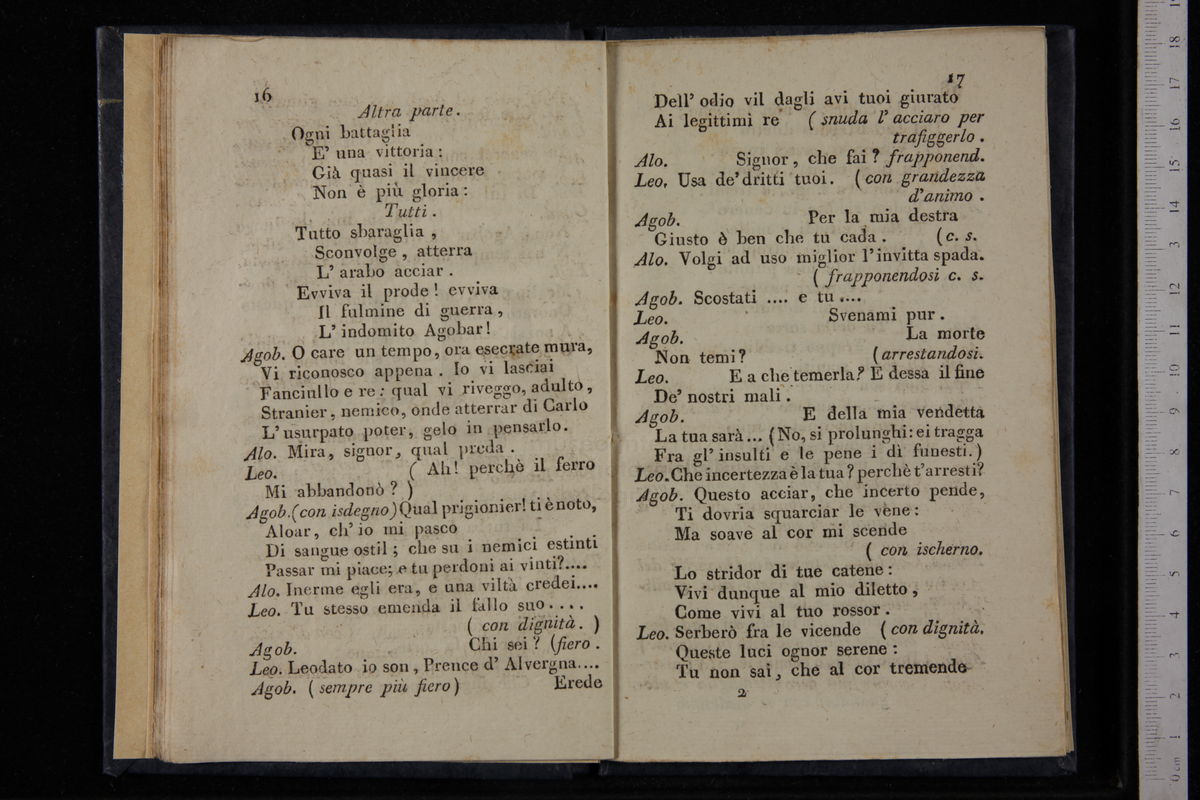 16
Altra parte.
Ogni battaglia
E' una vittoria:
Già quasi il vincere
Non è più gloria:
Tutti.
Tutto sbaraglia,
Sconvolge, atterra
L' arabo acciar.
Evviva il prode! evviva
Il fulmine di guerra,
L' indomito Agobar!
Agob. O care un tempo, ora esecrate mura,
Vi riconosco appena. Io vi lasciai
Fanciullo e re: qual vi riveggo, adulto,
Stranier, nemico, onde atterrar di Carlo
L' usurpato poter, gelo in pensarlo.
Alo. Mira, signor, qual preda.
Leo. ( Ah! perchè il ferro
Mi abbandonò? )
Agob. (con isdegno) Qual prigionier! ti è noto,
Aloar, ch' io mi pasco
Di sangue ostil; che su i nemici estinti
Passar mi piace; e tu perdoni ai vinti?....
Alo. Inerme egli era, e una viltà credei....
Leo. Tu stesso emenda il fallo suo....
( con dignità. )
Agob. Chi sei? (fiero.
Leo. Leodato io son, Prence d' Alvergna....
Agob. ( sempre più fiero) Erede
17
Dell' odio vil dagli avi tuoi giurato
Ai legittimi re ( snuda l' acciaro per
trafiggerlo.
Alo. Signor, che fai? frapponend.
Leo. Usa de' dritti tuoi. (con grandezza
d'animo.
Agob. Per la mia destra
Giusto è ben che tu cada. (c. s.
Alo. Volgi ad uso miglior l'invitta spada.
( frapponendosi c. s.
Agob. Scostati .... e tu ....
Leo. Svenami pur.
Agob. La morte
Non temi? (arrestandosi.
Leo. E a che temerla? E dessa il fine
De' nostri mali.
Agob. E della mia vendetta
La tua sarà... (No, si prolunghi: ei tragga
Fra gl' insulti e le pene i dì funesti.)
Leo. Che incertezza è la tua? perchè t'arresti?
Agob. Questo acciar, che incerto pende,
Ti dovria squarciar le vene:
Ma soave al cor mi scende
( con ischerno.
Lo stridor di tue catene:
Vivi dunque al mio diletto,
Come vivi al tuo rossor.
Leo. Serberò fra le vicende (con dignità.
Queste luci ognor serene:
Tu non sai, che al cor tremendo
2